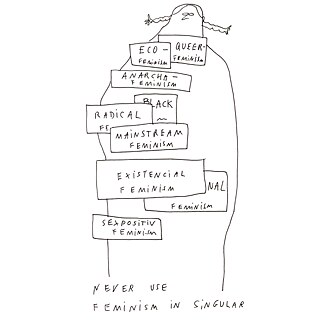 ECO-
FEMINISM
QUEER-
FEMINISM
ANARCHA-
FEMINISM
BLACK
RADICAL
FE
MAINSTREAM
FEMINISM
EXISTENCIAL
FEMINISM
NAL
FEMINISM
SEXPOSITIV
FEMINISM
NEVER USE
FEMINISM IN SINGULAR